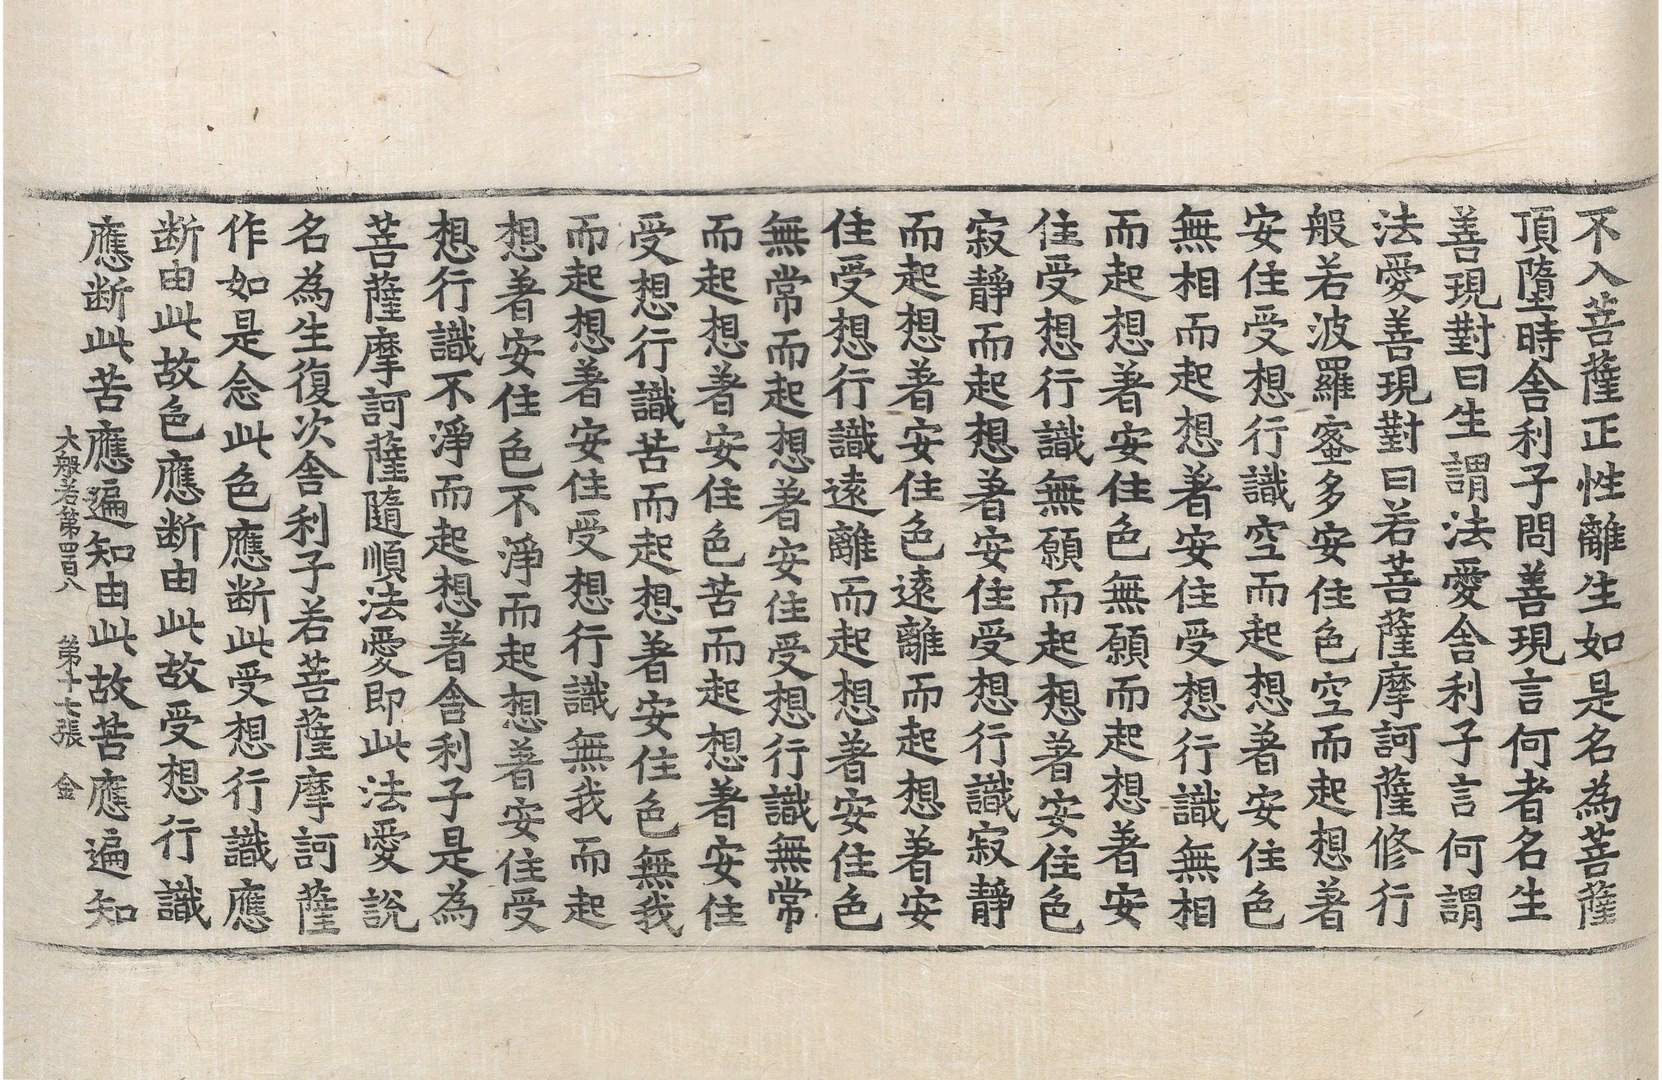 不入菩薩正性離生如是名為菩薩
頂墮時舍利子問善現言何者名生
善現對曰生謂法愛舍利子言何謂
法愛善現對曰若菩薩摩訶薩修行
般若波羅蜜多安住色空而起想著
安住受想行識空而起想著安住色
無相而起想著安住受想行識無相
而起想著安住色無願而起想著安
住受想行識無願而起想著安住色
寂靜而起想著安住受想行識寂靜
而起想著安住色遠離而起想著安
住受想行識遠離而起想著安住色
無常而起想著安住受想行識無常
而起想著安住色苦而起想著安住
受想行識苦而起想著安住色無我
而起想著安住受想行識無我而起
想著安住色不淨而起想著安住受
想行識不淨而起想著舍利子是為
菩薩摩訶薩隨順法愛即此法愛說
名為生復次舍利子若菩薩摩訶薩
作如是念此色應断此受想行識應
断由此故色應断由此故受想行識
應断此苦應遍知由此故苦應遍知
大般若第四百八 第十七張 金